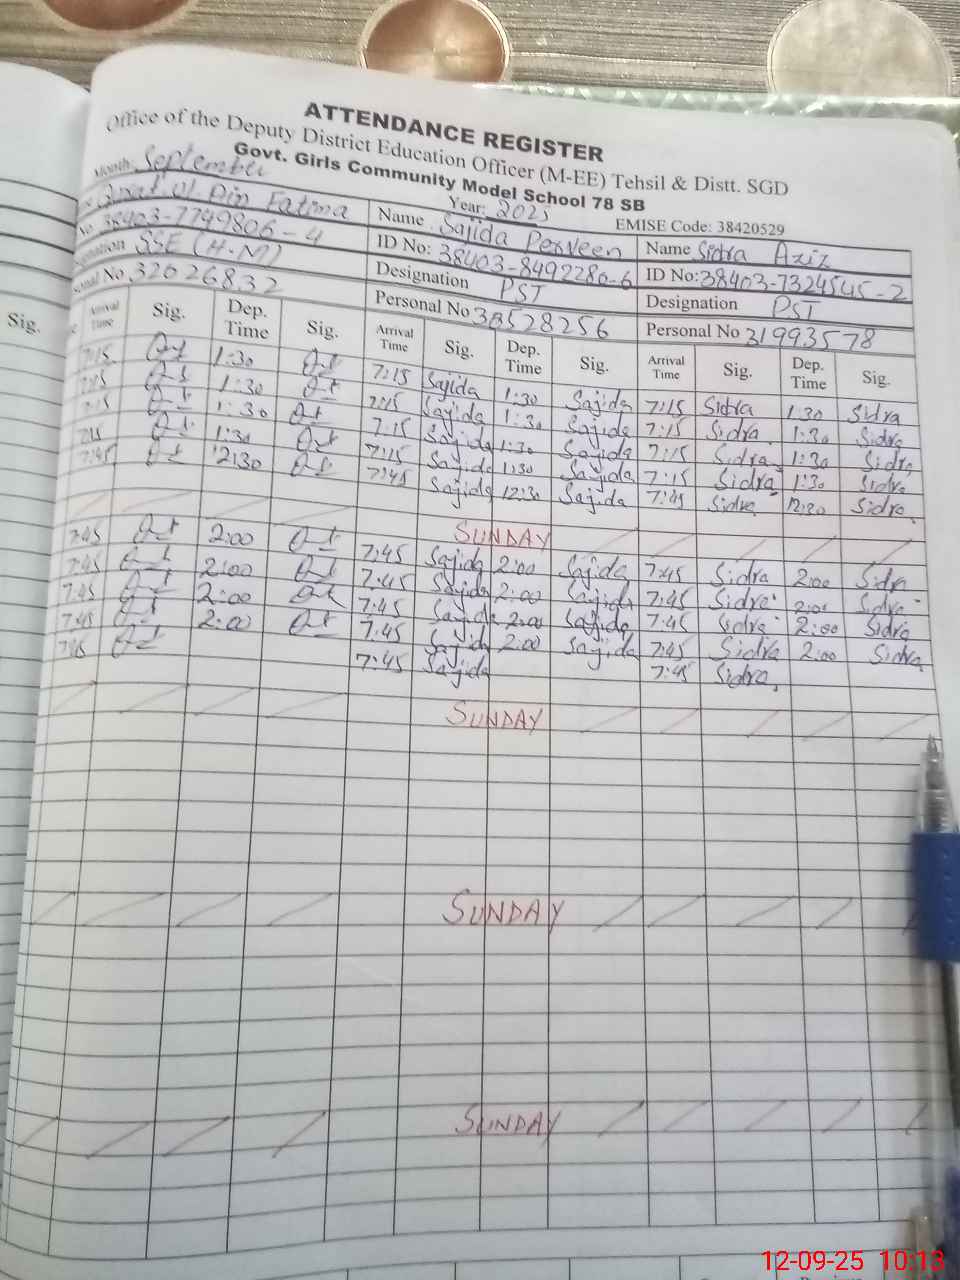 ATTENDANCE REGISTER
Office of the Deputy District Education Officer (M-EE) Tehsil & Distt. SGD
Govt. Girls Community Model School 78 SB
Month: September Year: 2025 EMISE Code: 38420529
Fatima Name Sajida Perveen Name Sidra Aziz
38403-7749806-4 ID No: 38403-8492280-6 ID No: 38403-7324545-2
SSE (H.M) Designation PST Designation PST
No 32026832 Personal No 38528256 Personal No 31993578
Sig. Arrival Time Sig. Dep. Time Sig. Arrival Time Sig. Dep. Time Sig. Arrival Time Sig. Dep. Time Sig.
7:15 1:30 7:15 Sajida 1:30 Sajida 7:15 Sidra 1:30 Sidra
7:15 1:30 7:15 Sajida 1:30 Sajida 7:15 Sidra 1:30 Sidra
7:15 1:30 7:15 Sajida 1:30 Sajida 7:15 Sidra 1:30 Sidra
7:15 1:30 7:15 Sajida 1:30 Sajida 7:15 Sidra 1:30 Sidra
7:45 12:30 7:45 Sajida 12:30 Sajida 7:45 Sidra 12:30 Sidra
SUNDAY
7:45 2:00 7:45 Sajida 2:00 Sajida 7:45 Sidra 2:00 Sidra
7:45 2:00 7:45 Sajida 2:00 Sajida 7:45 Sidra 2:00 Sidra
7:45 2:00 7:45 Sajida 2:00 Sajida 7:45 Sidra 2:00 Sidra
7:45 2:00 7:45 Sajida 2:00 Sajida 7:45 Sidra 2:00 Sidra
7:45 7:45 Sajida 7:45 Sidra
SUNDAY
SUNDAY
SUNDAY
12-09-25 10:13